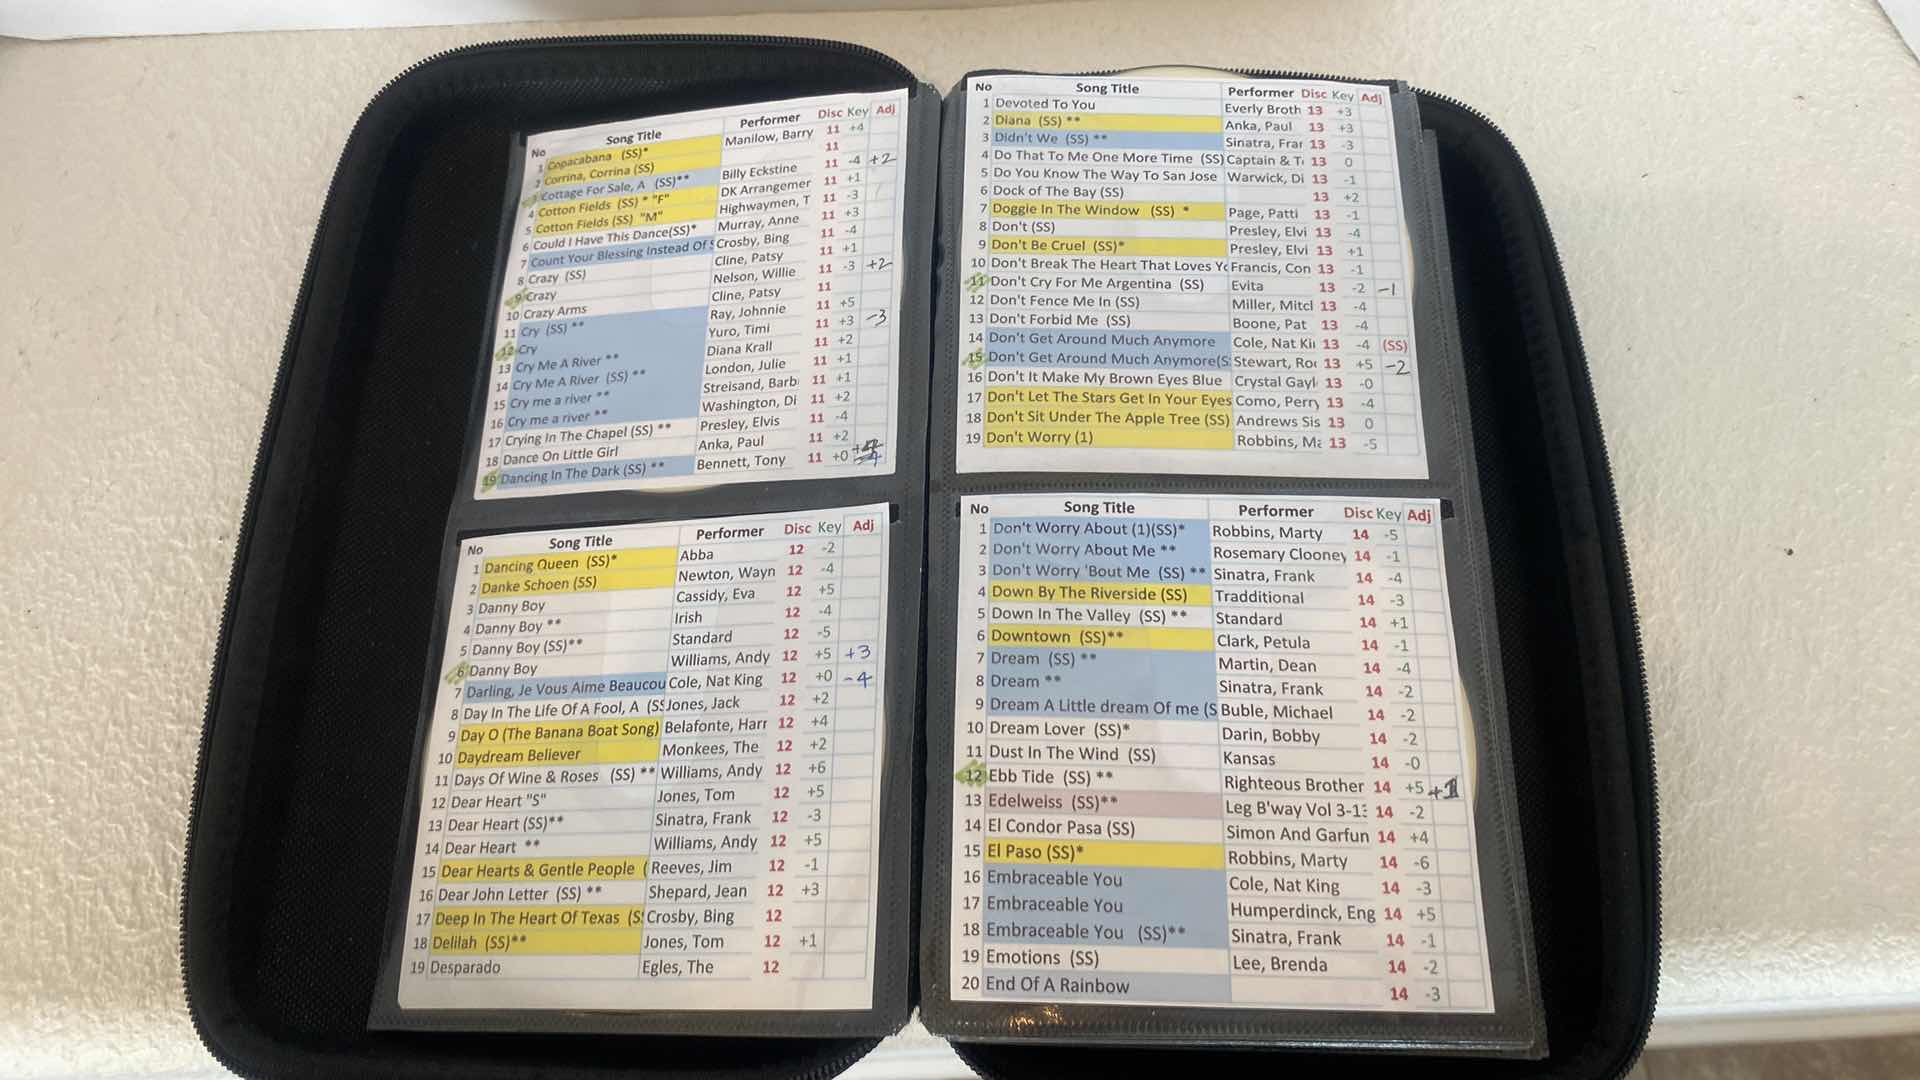 No Song Title Performer Disc Key Adj
1 Copacabana (SS)* Manilow, Barry 11 +4
2 Corrina, Corrina (SS) 11
3 Cottage For Sale, A (SS)** Billy Eckstine 11 -4 +2
4 Cotton Fields (SS) * "F" DK Arrangemer 11 +1
5 Cotton Fields (SS) "M" Highwaymen, T 11 -3
6 Could I Have This Dance(SS)* Murray, Anne 11 +3
7 Count Your Blessing Instead Of S Crosby, Bing 11 -4
8 Crazy (SS) Cline, Patsy 11 +1
9 Crazy Nelson, Willie 11 -3 +2
10 Crazy Arms Cline, Patsy 11
11 Cry (SS) ** Ray, Johnnie 11 +5
12 Cry Yuro, Timi 11 +3 -3
13 Cry Me A River ** Diana Krall 11 +2
14 Cry Me A River (SS) ** London, Julie 11 +1
15 Cry me a river ** Streisand, Barb 11 +1
16 Cry me a river ** Washington, Di 11 +2
17 Crying In The Chapel (SS) ** Presley, Elvis 11 -4
18 Dance On Little Girl Anka, Paul 11 +2
19 Dancing In The Dark (SS) ** Bennett, Tony 11 +0 -4
No Song Title Performer Disc Key Adj
1 Dancing Queen (SS)* Abba 12 -2
2 Danke Schoen (SS) Newton, Wayn 12 -4
3 Danny Boy Cassidy, Eva 12 +5
4 Danny Boy ** Irish 12 -4
5 Danny Boy (SS)** Standard 12 -5
6 Danny Boy Williams, Andy 12 +5 +3
7 Darling, Je Vous Aime Beaucou Cole, Nat King 12 +0 -4
8 Day In The Life Of A Fool, A (SS Jones, Jack 12 +2
9 Day O (The Banana Boat Song) Belafonte, Harr 12 +4
10 Daydream Believer Monkees, The 12 +2
11 Days Of Wine & Roses (SS) ** Williams, Andy 12 +6
12 Dear Heart "S" Jones, Tom 12 +5
13 Dear Heart (SS)** Sinatra, Frank 12 -3
14 Dear Heart ** Williams, Andy 12 +5
15 Dear Hearts & Gentle People ( Reeves, Jim 12 -1
16 Dear John Letter (SS) ** Shepard, Jean 12 +3
17 Deep In The Heart Of Texas (S Crosby, Bing 12
18 Delilah (SS)** Jones, Tom 12 +1
19 Desparado Egles, The 12
No Song Title Performer Disc Key Adj
1 Devoted To You Everly Broth 13 +3
2 Diana (SS) ** Anka, Paul 13 +3
3 Didn't We (SS) ** Sinatra, Frar 13 -3
4 Do That To Me One More Time (SS) Captain & T 13 0
5 Do You Know The Way To San Jose Warwick, Di 13 -1
6 Dock of The Bay (SS) 13 +2
7 Doggie In The Window (SS) * Page, Patti 13 -1
8 Don't (SS) Presley, Elvi 13 -4
9 Don't Be Cruel (SS)* Presley, Elvi 13 +1
10 Don't Break The Heart That Loves Yo Francis, Con 13 -1
11 Don't Cry For Me Argentina (SS) Evita 13 -2 -1
12 Don't Fence Me In (SS) Miller, Mitcl 13 -4
13 Don't Forbid Me (SS) Boone, Pat 13 -4
14 Don't Get Around Much Anymore Cole, Nat Ki 13 -4 (SS)
15 Don't Get Around Much Anymore(S Stewart, Ro 13 +5 -2
16 Don't It Make My Brown Eyes Blue Crystal Gayl 13 -0
17 Don't Let The Stars Get In Your Eyes Como, Perry 13 -4
18 Don't Sit Under The Apple Tree (SS) Andrews Sis 13 0
19 Don't Worry (1) Robbins, Ma 13 -5
No Song Title Performer Disc Key Adj
1 Don't Worry About (1)(SS)* Robbins, Marty 14 -5
2 Don't Worry About Me ** Rosemary Clooney 14 -1
3 Don't Worry 'Bout Me (SS) ** Sinatra, Frank 14 -4
4 Down By The Riverside (SS) Tradditional 14 -3
5 Down In The Valley (SS) ** Standard 14 +1
6 Downtown (SS)** Clark, Petula 14 -1
7 Dream (SS) ** Martin, Dean 14 -4
8 Dream ** Sinatra, Frank 14 -2
9 Dream A Little dream Of me (S Buble, Michael 14 -2
10 Dream Lover (SS)* Darin, Bobby 14 -2
11 Dust In The Wind (SS) Kansas 14 -0
12 Ebb Tide (SS) ** Righteous Brother 14 +5 +1
13 Edelweiss (SS)** Leg B'way Vol 3-13 14 -2
14 El Condor Pasa (SS) Simon And Garfun 14 +4
15 El Paso (SS)* Robbins, Marty 14 -6
16 Embraceable You Cole, Nat King 14 -3
17 Embraceable You Humperdinck, Eng 14 +5
18 Embraceable You (SS)** Sinatra, Frank 14 -1
19 Emotions (SS) Lee, Brenda 14 -2
20 End Of A Rainbow 14 -3